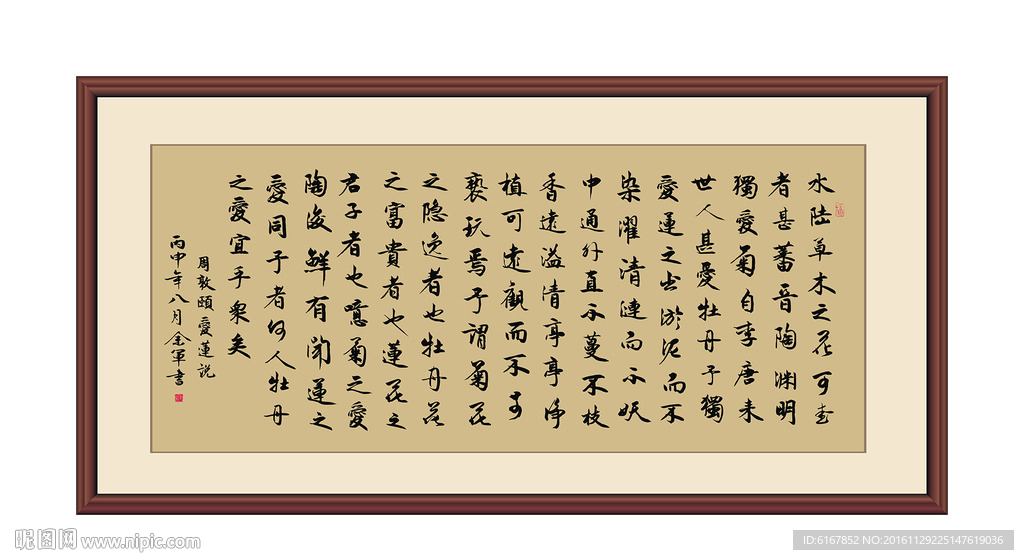 水陸草木之花可愛
者甚蕃晉陶渊明
獨愛菊自李唐来
世人甚愛牡丹予獨
愛蓮之出淤泥而不
染濯清漣而不妖
中通外直不蔓不枝
香遠溢清亭亭净
植可遠觀而不可
褻玩焉予謂菊花
之隐逸者也牡丹花
之富貴者也蓮花之
君子者也噫菊之愛
陶後鮮有聞蓮之
愛同予者何人牡丹
之愛宜乎衆矣
周敦頤愛蓮説
丙申年八月金軍書
昵图网 www.nipic.com
ID:6167852 NO:20161129225147619036